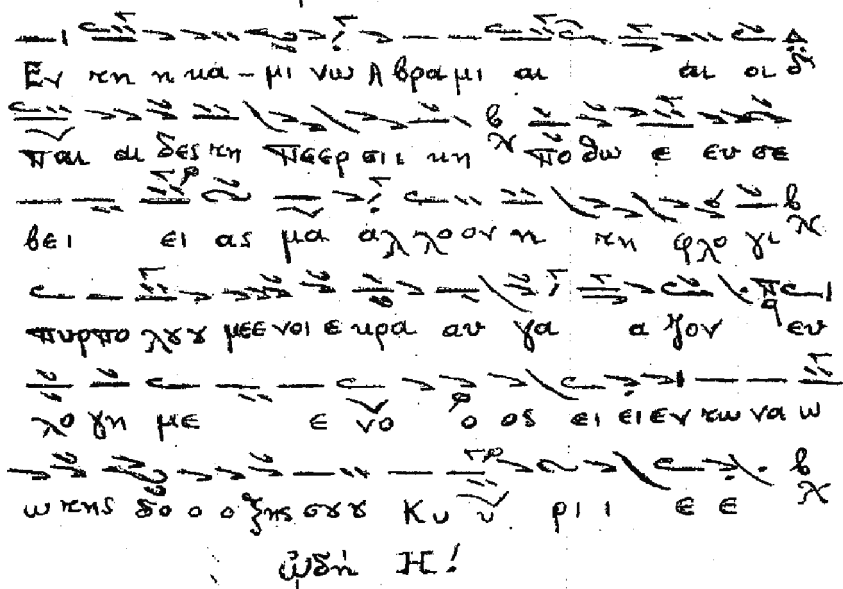 Εν τη η κα - μι νω Α βρα μι αι αι οι δ
παι αι δες τη Πεερ σιι κη πο θω ε ευ σε
βει ει ας μα αλ λοον η τη φλο γι
πυρπο λȣȣ μεε νοι ε κρα αυ γα α ζον ευ
λο γη με ε νο ο ος ει ει εν τω να ω
ω της δο ο ο ξης σȣȣ Κυ υ ρι ι ε ε
ᾠδή Η!